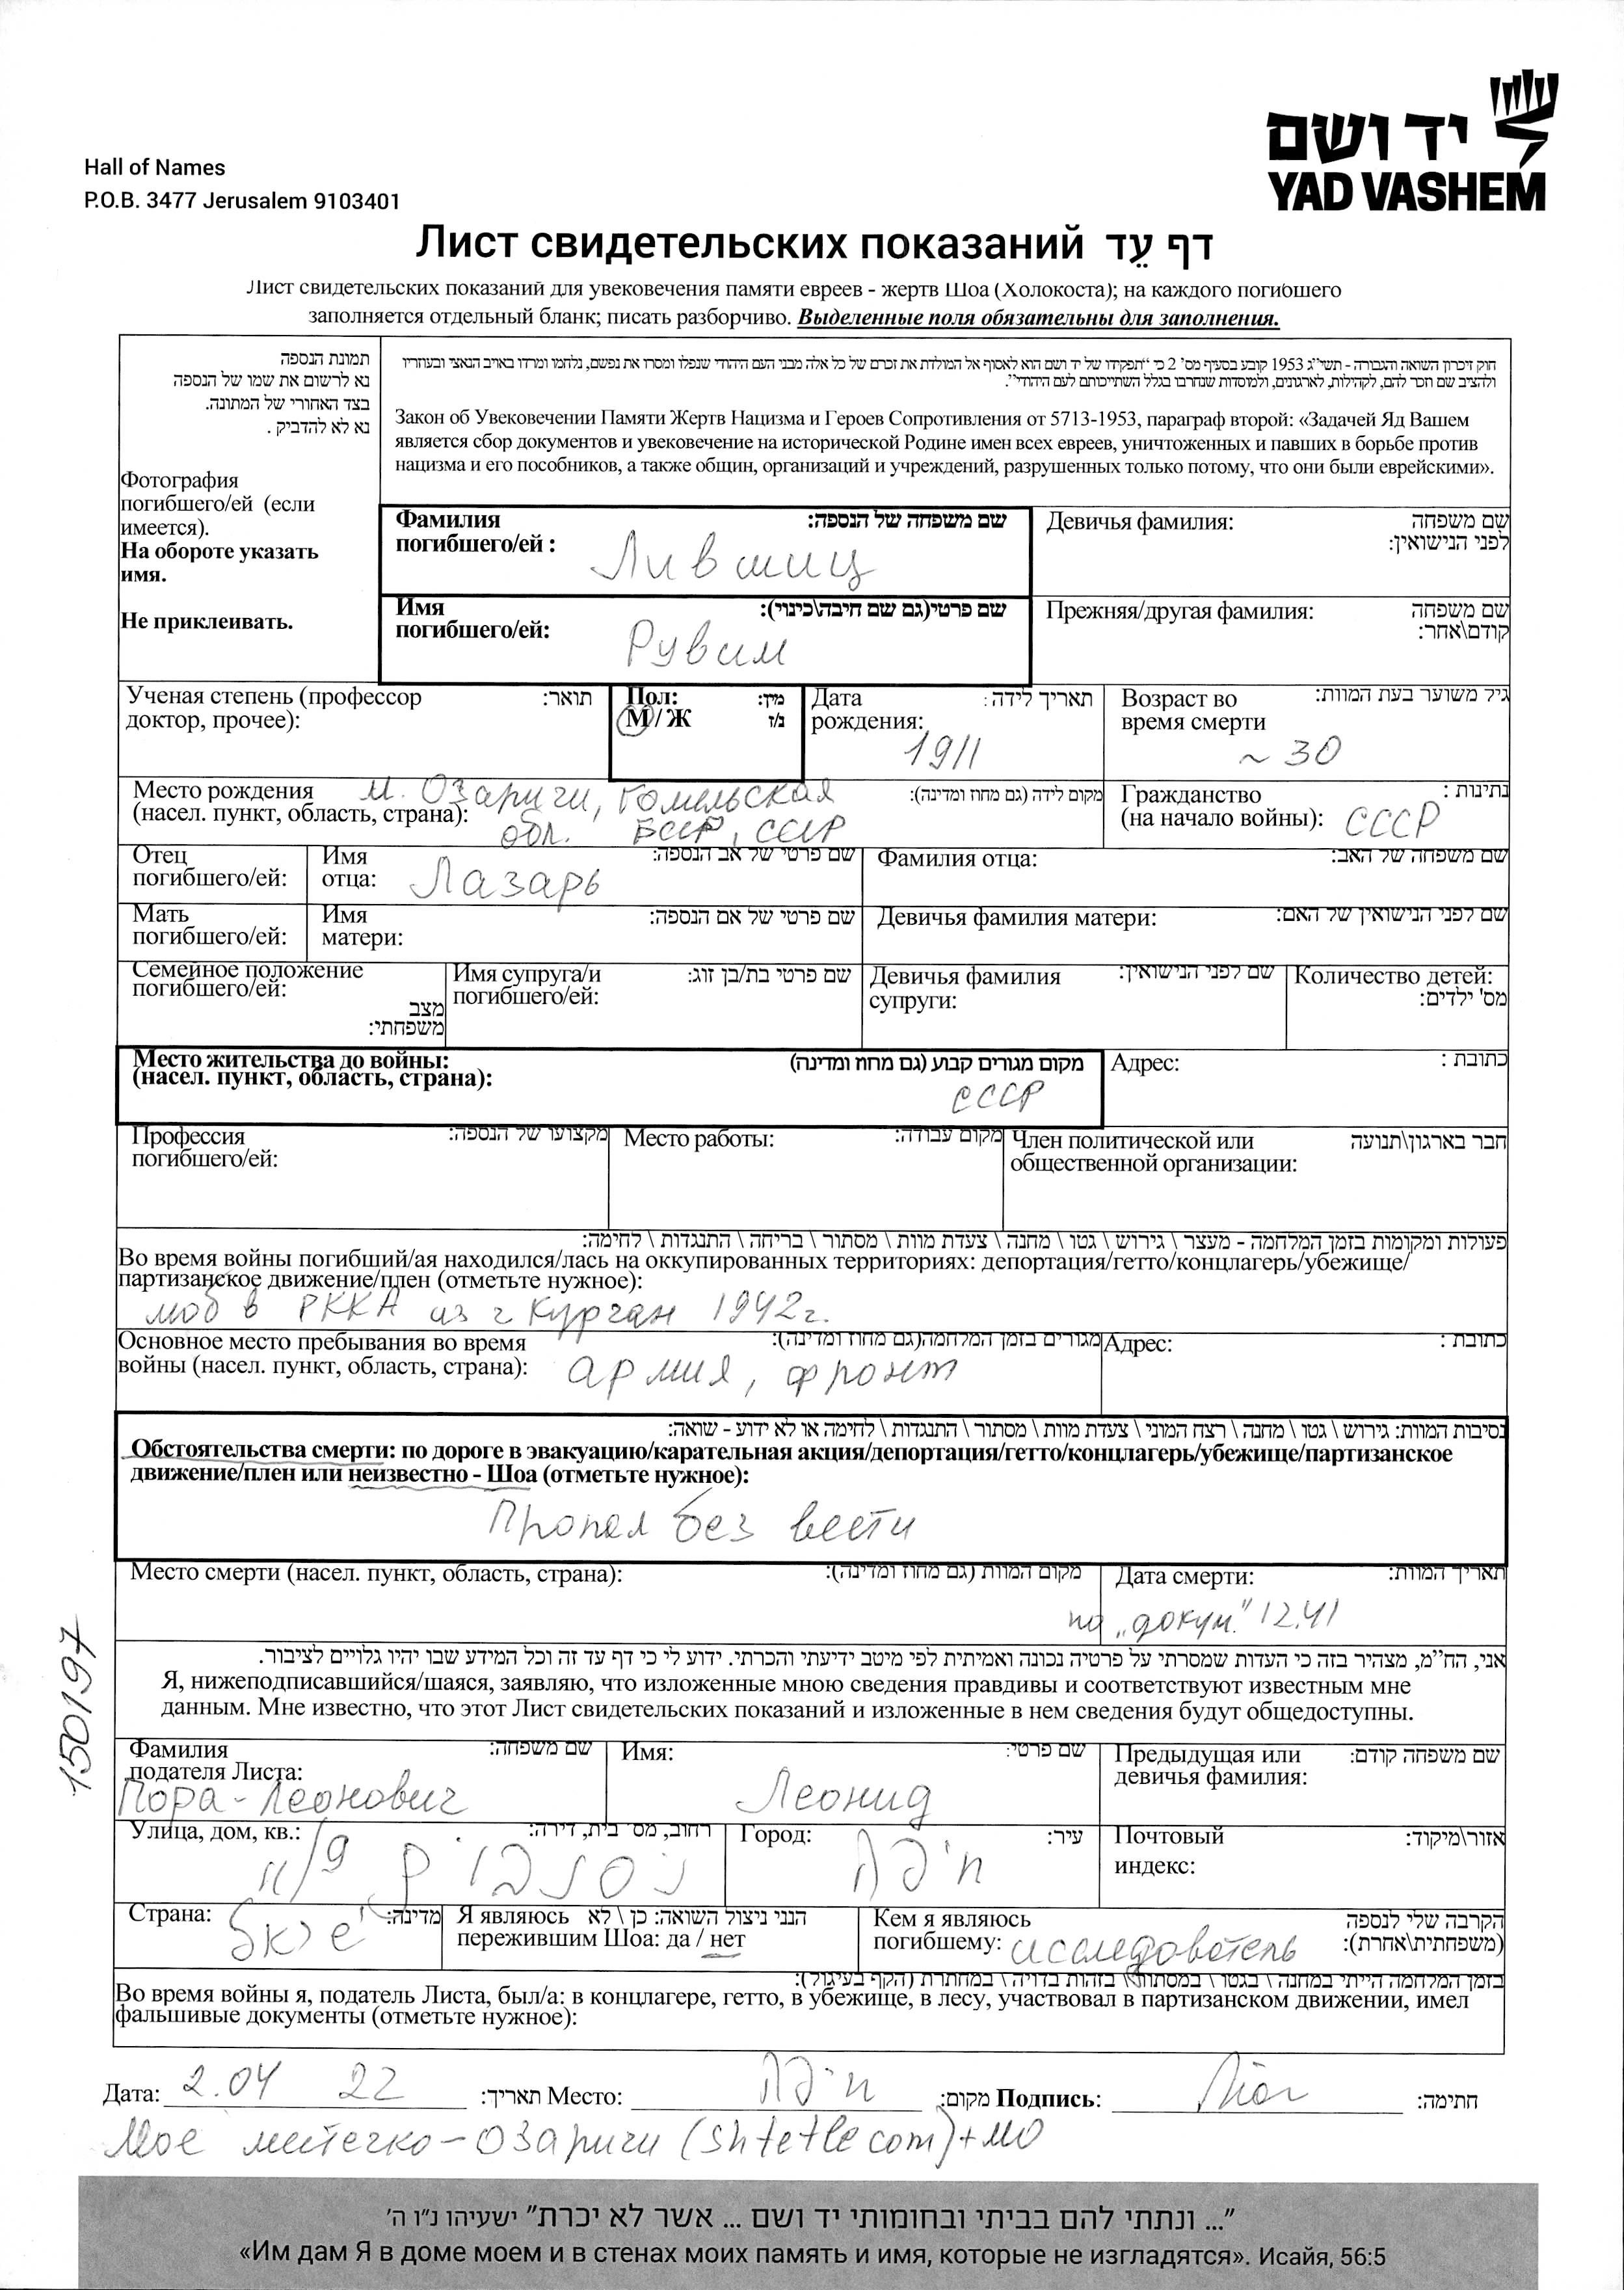 יד ושם
YAD VASHEM
Hall of Names
P.O.B. 3477 Jerusalem 9103401
Лист свидетельских показаний דף עֵד
Лист свидетельских показаний для увековечения памяти евреев - жертв Шоа (Холокоста); на каждого погибшего
заполняется отдельный бланк; писать разборчиво. Выделенные поля обязательны для заполнения.
תמונת הנספה
נא לרשום את שמו של הנספה
בצד האחורי של המתונה.
נא לא להדביק .
Фотография
погибшего/ей (если
имеется).
На обороте указать
имя.
Не приклеивать.
חוק זיכרון השואה והגבורה - תשי"ג 1953 קובע בסעיף מס' 2 כי "תפקידו של יד ושם הוא לאסוף אל המולדת את זכרם של כל אלה מבני העם היהודי שנפלו ומסרו את נפשם, נלחמו ומרדו באויב הנאצי ובעוזריו
ולהציב שם וזכר להם, לקהילות, לארגונים, ולמוסדות שנחרבו בגלל השתייכותם לעם היהודי".
Закон об Увековечении Памяти Жертв Нацизма и Героев Сопротивления от 5713-1953, параграф второй: «Задачей Яд Вашем
является сбор документов и увековечение на исторической Родине имен всех евреев, уничтоженных и павших в борьбе против
нацизма и его пособников, а также общин, организаций и учреждений, разрушенных только потому, что они были еврейскими».
Фамилия שם משפחה של הנספה:
погибшего/ей :
Лившиц
Девичья фамилия: שם משפחה
לפני הנישואין:
Имя שם פרטי(גם שם חיבה\כינוי):
погибшего/ей:
Рувим
Прежняя/другая фамилия: שם משפחה
קודם\אחר:
Ученая степень (профессор תואר:
доктор, прочее):
Пол: מין:
М / Ж ז/נ
Дата תאריך לידה:
рождения:
1911
Возраст во גיל משוער בעת המוות:
время смерти
~ 30
Место рождения м. Озаричи, Гомельская מקום לידה (גם מחוז ומדינה):
(насел. пункт, область, страна): обл. БССР, СССР
Гражданство נתינות :
(на начало войны): СССР
Отец Имя שם פרטי של אב הנספה:
погибшего/ей: отца: Лазарь
Фамилия отца: שם משפחה של האב:
Мать Имя שם פרטי של אם הנספה:
погибшего/ей: матери:
Девичья фамилия матери: שם לפני הנישואין של האם:
Семейное положение
погибшего/ей:
מצב
משפחתי:
Имя супруга/и שם פרטי בת/בן זוג:
погибшего/ей:
Девичья фамилия שם לפני הנישואין:
супруги:
Количество детей:
מס' ילדים:
Место жительства до войны: מקום מגורים קבוע (גם מחוז ומדינה)
(насел. пункт, область, страна):
СССР
Адрес: כתובת :
Профессия מקצועו של הנספה:
погибшего/ей:
Место работы: מקום עבודה:
Член политической или חבר בארגון\תנועה
общественной организации:
פעולות ומקומות בזמן המלחמה - מעצר \ גירוש \ גטו \ מחנה \ צעדת מוות \ מסתור \ בריחה \ התנגדות \ לחימה:
Во время войны погибший/ая находился/лась на оккупированных территориях: депортация/гетто/концлагерь/убежище/
партизанское движение/плен (отметьте нужное):
моб в РККА из г Курган 1942г.
Основное место пребывания во время מגורים בזמן המלחמה(גם מחוז ומדינה):
войны (насел. пункт, область, страна): армия, фронт
Адрес: כתובת :
נסיבות המוות: גירוש \ גטו \ מחנה \ רצח המוני \ צעדת מוות \ מסתור \ התנגדות \ לחימה או לא ידוע - שואה:
Обстоятельства смерти: по дороге в эвакуацию/карательная акция/депортация/гетто/концлагерь/убежище/партизанское
движение/плен или неизвестно - Шоа (отметьте нужное):
Пропал без вести
Место смерти (насел. пункт, область, страна): מקום המוות (גם מחוז ומדינה):
Дата смерти: תאריך המוות:
по „докум." 12.41
150197
אני, הח"מ, מצהיר בזה כי העדות שמסרתי על פרטיה נכונה ואמיתית לפי מיטב ידיעתי והכרתי. ידוע לי כי דף עד זה וכל המידע שבו יהיו גלויים לציבור.
Я, нижеподписавшийся/шаяся, заявляю, что изложенные мною сведения правдивы и соответствуют известным мне
данным. Мне известно, что этот Лист свидетельских показаний и изложенные в нем сведения будут общедоступны.
Фамилия שם משפחה:
подателя Листа:
Пора-Леонович
Имя: שם פרטי:
Леонид
Предыдущая или שם משפחה קודם:
девичья фамилия:
Улица, дом, кв.: רחוב, מס' בית, דירה:
Город: עיר:
חיפה
Почтовый אזור\מיקוד:
индекс:
Страна: מדינה:
Я являюсь הנני ניצול השואה: כן \ לא
пережившим Шоа: да / нет
Кем я являюсь הקרבה שלי לנספה
погибшему: исследователь (משפחתית\אחרת):
בזמן המלחמה הייתי במחנה \ בגטו \ במסתור \ בזהות בדויה \ במחתרת (הקף בעיגול):
Во время войны я, податель Листа, был/а: в концлагере, гетто, в убежище, в лесу, участвовал в партизанском движении, имел
фальшивые документы (отметьте нужное):
Дата: 2.04 22 תאריך: Место: חיפה מקום: Подпись: חתימה:
Мое местечко - Озаричи (shtetle com) + МО
"... ונתתי להם בביתי ובחומותי יד ושם ... אשר לא יכרת" ישעיהו נ"ו ה'
«Им дам Я в доме моем и в стенах моих память и имя, которые не изгладятся». Исайя, 56:5